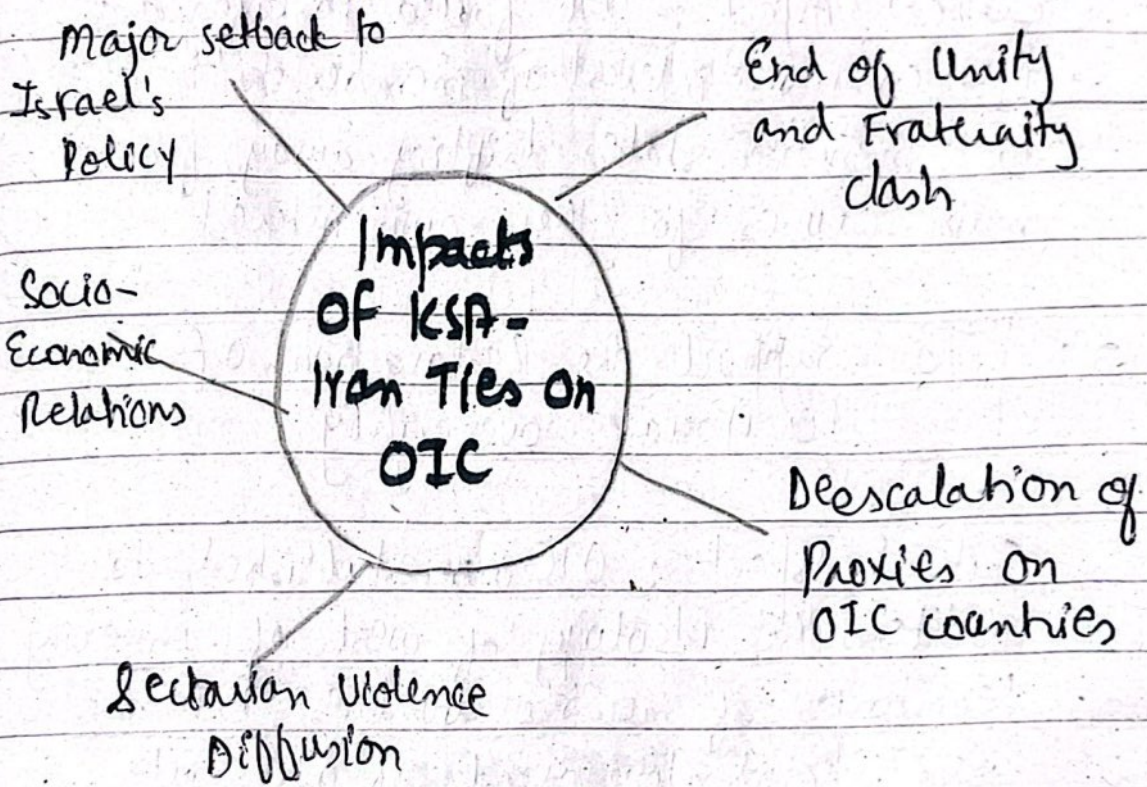 Major setback to
Israel's
Policy
End of Unity
and Fraternity
clash
Impacts
OF KSA-
Iran Ties On
OIC
Socio-
Economic
Relations
Deescalation of
Proxies on
OIC countries
Sectarian Violence
Diffusion